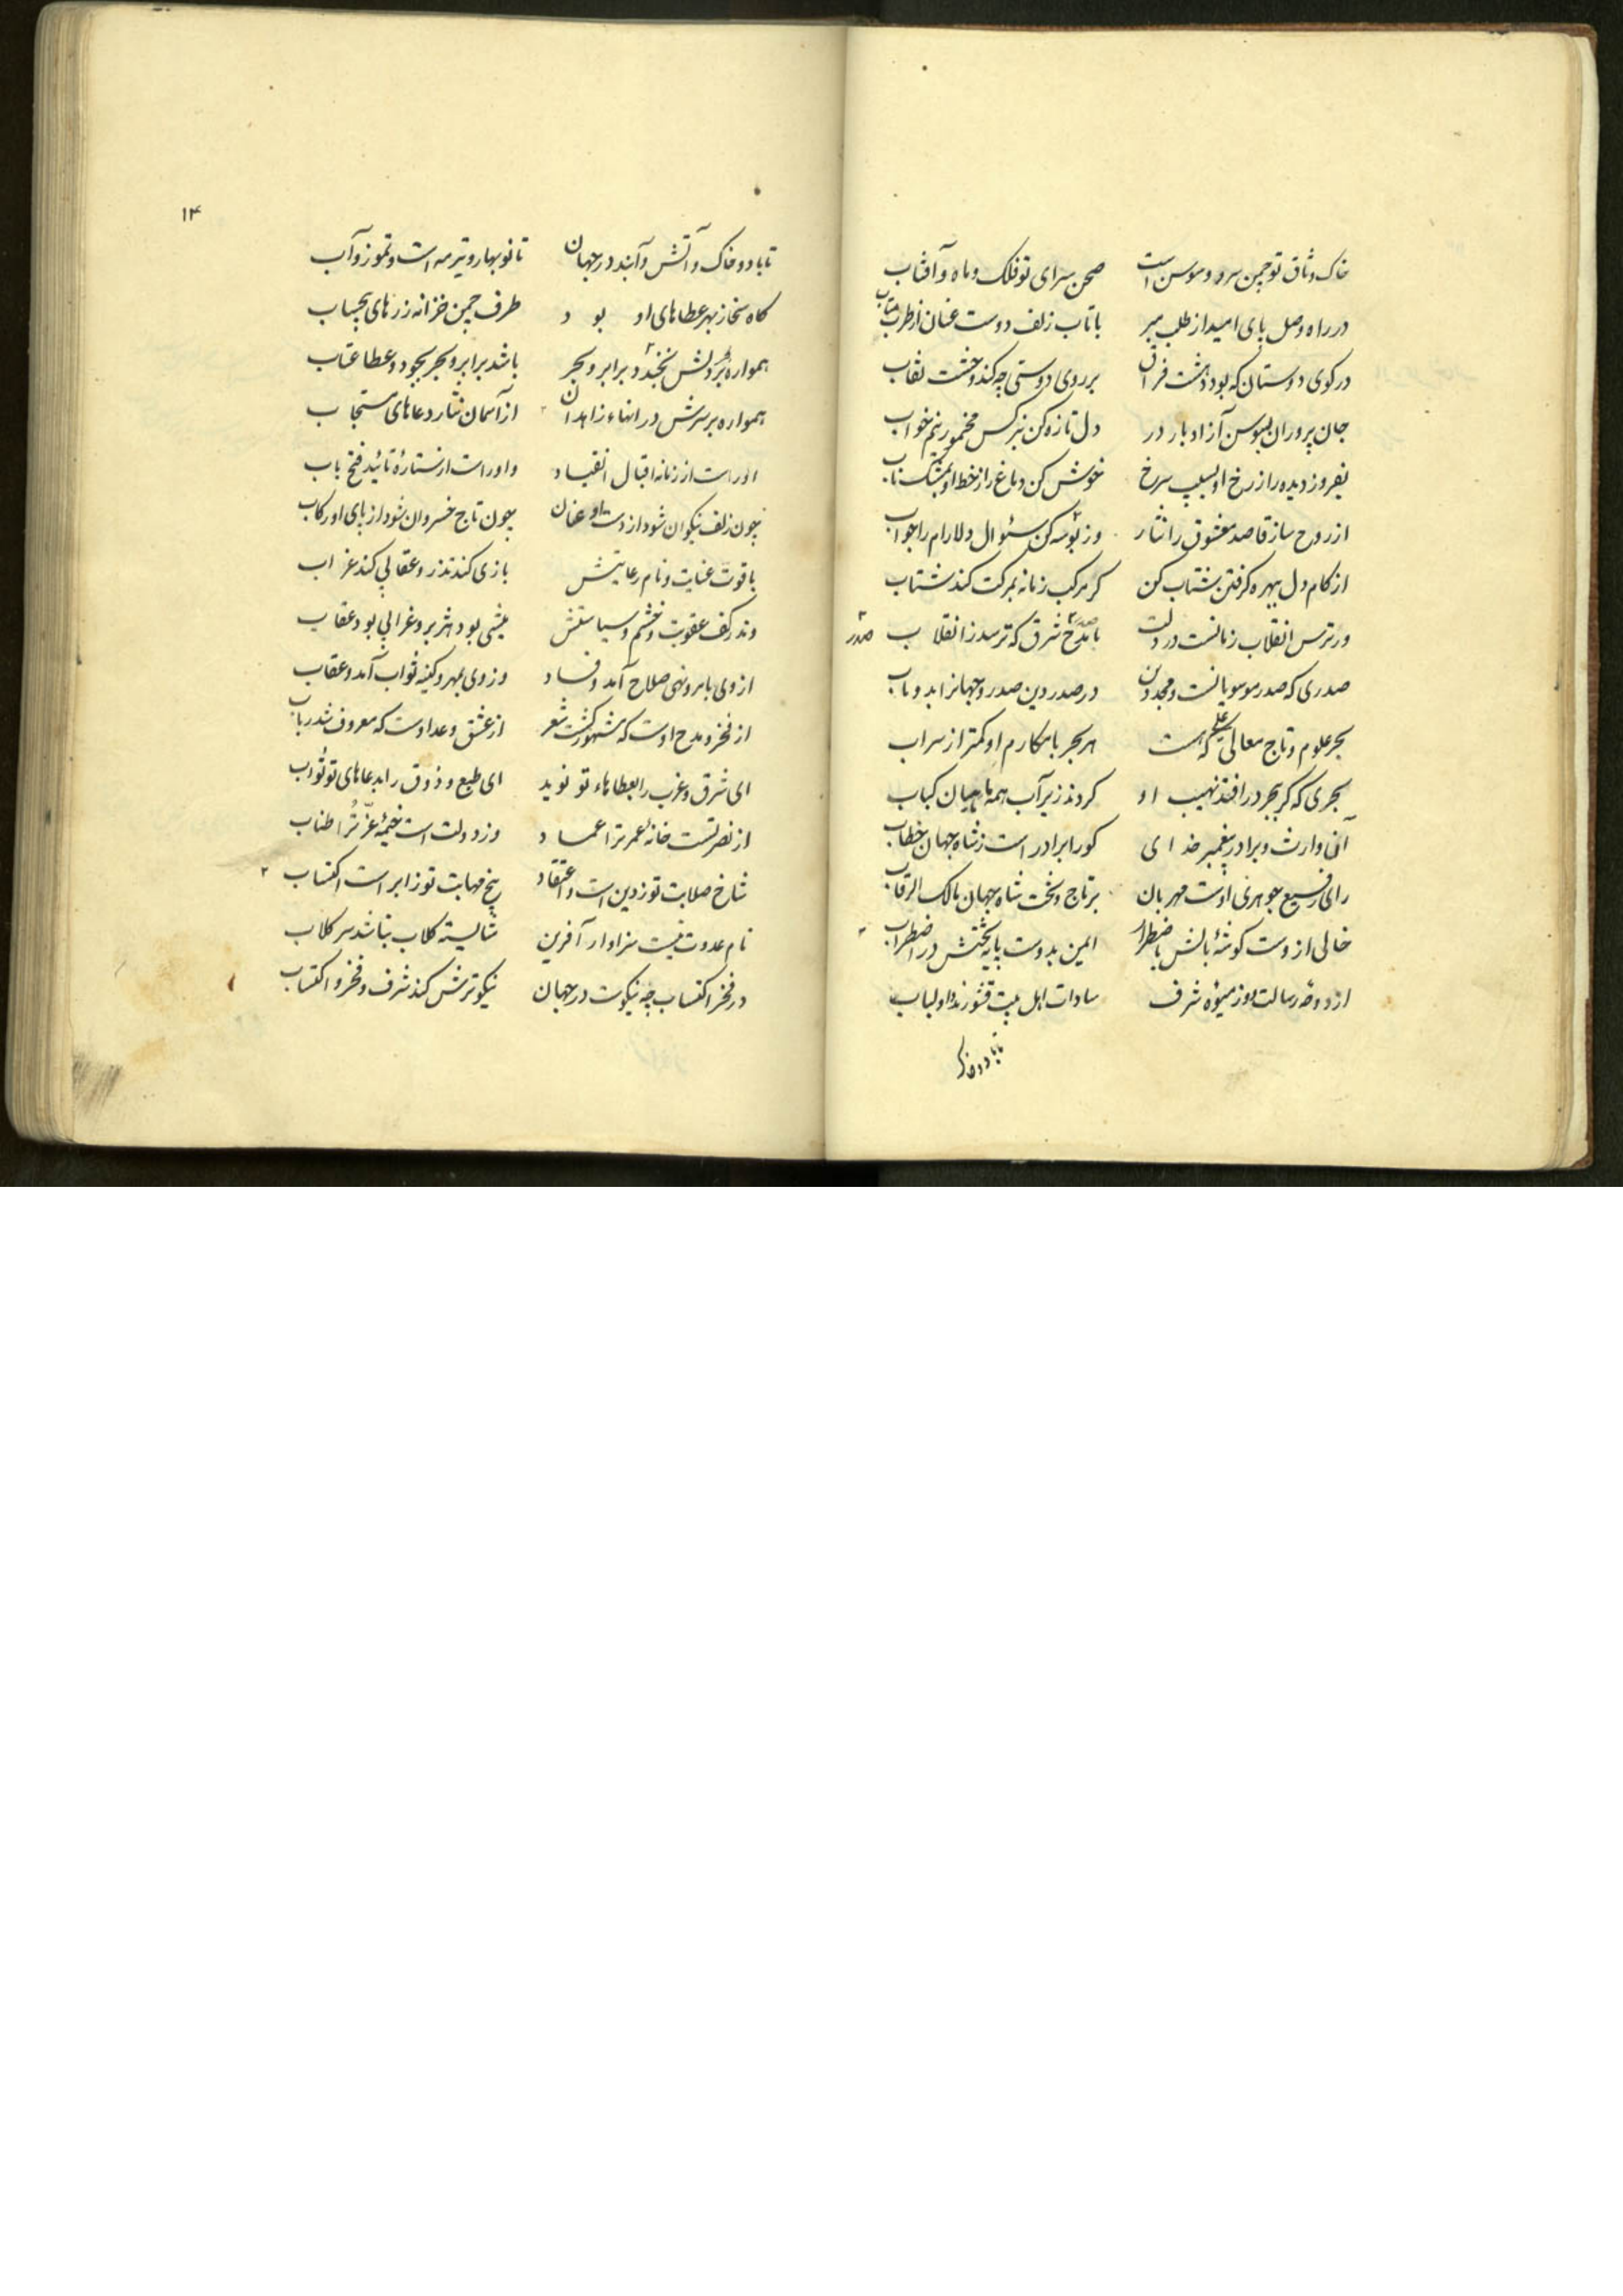 خاک وثاق تو چمن سرو و سوسن است صحن سرای تو فلک و ماه و آفتاب
در راه وصل پای امید از طلب مبر با تاب زلف دوست عنان از طرب متاب
در کوی دوستان که بود دهشت فراق بر روی دوستی چه کند وحشت نقاب
جان پروران بسوسن آزاد بار در دل تازه کن بنرکس مخمور نیم خواب
بفروز دیده را ز رخ او بسیب سرخ خوش کن دماغ را ز خط او بمشک ناب
از روح ساز قاصد معشوق را نثار وز بوسه کن سئوال دلارام را جواب
از کام دل ببهره کرفتن شتاب کن کر مرکب زمانه بمرکت کند شتاب
ور ترس انقلاب زمانست در دلت با مدح شرق که ترسد ز انقلاب
صدر
صدری که صدر موسویانست و مجد دین در صدر دین صدر و جهانرا بدو مآب
بحر علوم و تاج معالی علی که هست هر بحر با مکارم او کمتر از سراب
بحری که کر ببحر در افتد نهیب او کردند زیر آب همه ماهیان کباب
آن وارث و برادر پیغمبر خدای کورا برادر است ز شاه جهان خطاب
رای رفیع جوهری اوست مهربان بر تاج و تخت شاه جهان مالک الرقاب
خالی از وست کوشهٔ بالش باضطرار ایمن بدوست پایه تختش در اضطراب
از دوحه رسالت میوهٔ شرف سادات اهل بیت قشورند و او لباب
تا باد و خاک
۱۴
تا باد و خاک و آتش و آبند در جهان تا نوبهار و تیرمه است و تموز و آب
کاه سخا ز بهر عطاهای او بود طرف چمن خزانه زرهای بیحساب
همواره بر دلش نخندد بر ابر و بحر باشد بر ابر و بحر بجود و عطا عتاب
همواره بر سرش در انهاء زاهدان از آسمان نثار دعاهای مستجاب
او راست از زمانه اقبال انقیاد و او راست از ستارهٔ تائید فتح باب
چون زلف نیکوان شود از دست او عنان چون تاج خسروان شود از پای او رکاب
با قوت عنایت و نام رعایتش بازی کند تذرو عقابی کند غراب
وندر کف عقوبت و خشم و سیاستش میشی بود هژبر و غرابی بود عقاب
از وی بامر و نهی صلاح آمد و فساد وز وی بمهر و کینه ثواب آمد و عقاب
از فخر و مدح اوست که مشهور کشت شعر از عشق وعد اوست که معروف شد رباب
ای شرق و غرب را بعطاهاء تو نوید ای طبع و ذوق را بدعاهای تو ثواب
از نصرتست خانهٔ عمر ترا عماد وز دولت است خیمهٔ عز ترا طناب
شاخ صلابت تو ز دین است و اعتقاد بیخ مهابت تو ز ابر است اکتساب
نام عدوت نیست سزاوار آفرین شایسته کلاب نباشد سر کلاب
در فخر اکتساب چه نیکوست در جهان نیکوترش کند شرف و فخر و اکتساب